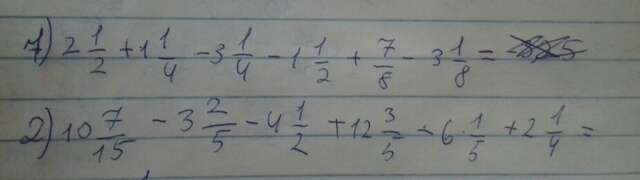 1) 2 1/2 + 1 1/4 - 3 1/4 - 1 1/2 + 7/8 - 3 1/8 =
2) 10 7/15 - 3 2/5 - 4 1/2 + 12 3/5 - 6 1/5 + 2 1/4 =